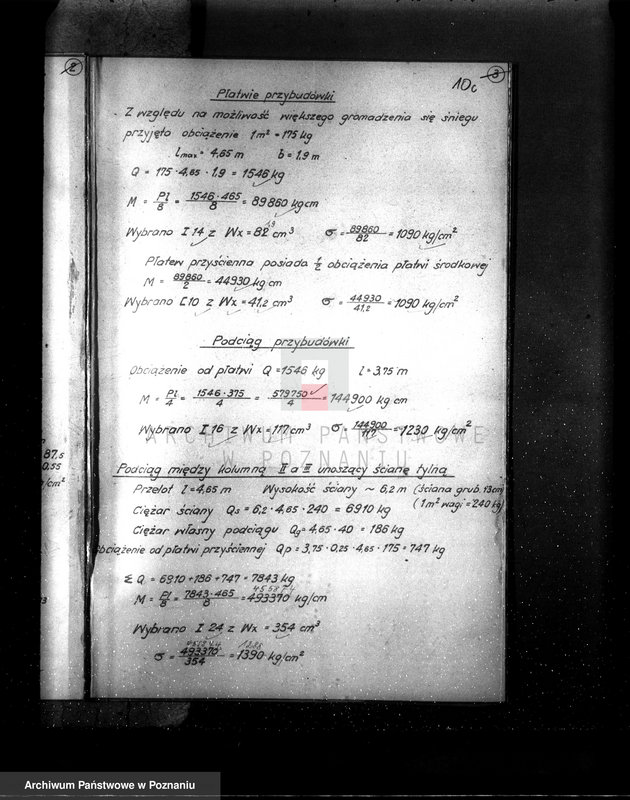 2
3
10c
Płatwie przybudówki
Z względu na możliwość większego gromadzenia się śniegu
przyjęto obciążenie 1m² = 175 kg
lmax = 4,65 m b = 1,9 m
Q = 175 · 4,65 · 1,9 = 1546 kg
M = Pl/8 = 1546 · 465/8 = 89860 kgcm
Wybrano I 14 z Wx = 82 cm³ σ = 89860/82 = 1090 kg/cm²
Płatew przyścienna posiada ½ obciążenia płatwi środkowej
M = 89860/2 = 44930 kg cm
Wybrano C 10 z Wx = 41,2 cm³ σ = 44930/41,2 = 1090 kg/cm²
Podciąg przybudówki
Obciążenie od płatwi Q = 1546 kg l = 3,75 m
M = Pl/4 = 1546 · 375/4 = 579750/4 = 144900 kg cm
Wybrano I 16 z Wx = 117 cm³ σ = 144900/117 = 1230 kg/cm²
ARCHIWUM PAŃSTWOWE
W POZNANIU
87,5
0,55
/cm²
Podciąg między kolumną II a III unoszący ścianę tylną
Przelot l = 4,65 m Wysokość ściany ~ 6,2 m (ściana grub. 13cm)
(1m² wagi = 240 kg)
Ciężar ściany Qs = 6,2 · 4,65 · 240 = 6910 kg
Ciężar własny podciągu Qg = 4,65 · 40 = 186 kg
Obciążenie od płatwi przyściennej Qp = 3,75 · 0,25 · 4,65 · 175 = 747 kg
Σ Q = 6910 + 186 + 747 = 7843 kg
M = Pl/8 = 7843 · 465/8 = 493370 kg/cm
Wybrano I 24 z Wx = 354 cm³
σ = 493370/354 = 1390 kg/cm²
Archiwum Państwowe w Poznaniu